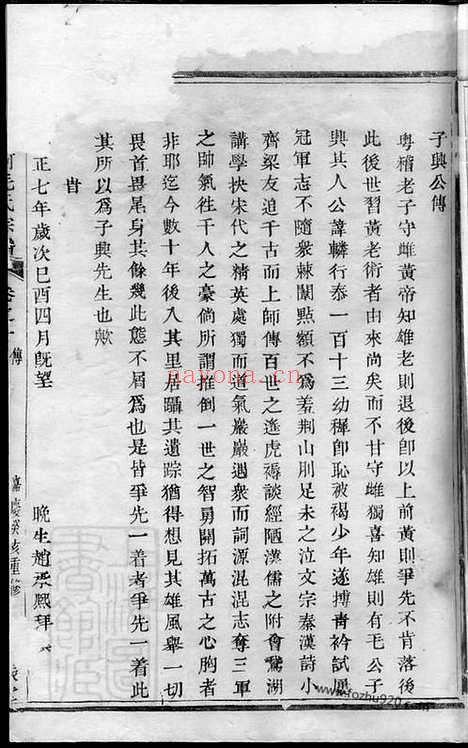 子興公傳
粵稽老子守雌黃帝知雄老則退後卽以上前黃則爭先不肯落後
此後世習黃老術者由來尚矣而不甘守雌獨喜知雄則有毛公子
興其人公諱轔行泰一百十三幼穉卽恥被褐少年遂搏青衿試屢
冠軍志不隨衆棘闈點額不爲羞荆山刖足未之泣文宗秦漢詩小
齊梁友廹千古而上師傳百世之遙虎褥談經陋漢儒之附會鵞湖
講學快宋代之精英處獨而道氣巖巖遇衆而詞源混混志奪三軍
之帥氣徃千人之豪倘所謂推倒一世之智勇開拓萬古之心胸者
非耶迄今數十年後入其里居躡其遺踪猶得想見其雄風舉一切
畏首畏尾身其餘幾此態不屑爲也是皆爭先一着者爭先一着此
其所以爲子興先生也歟
旹
正七年歲次己酉四月旣望
晚生趙承熙拜
毛氏宗譜
卷之
傳
嘉慶癸亥重修
nayona.cn
www.fozhu920.com